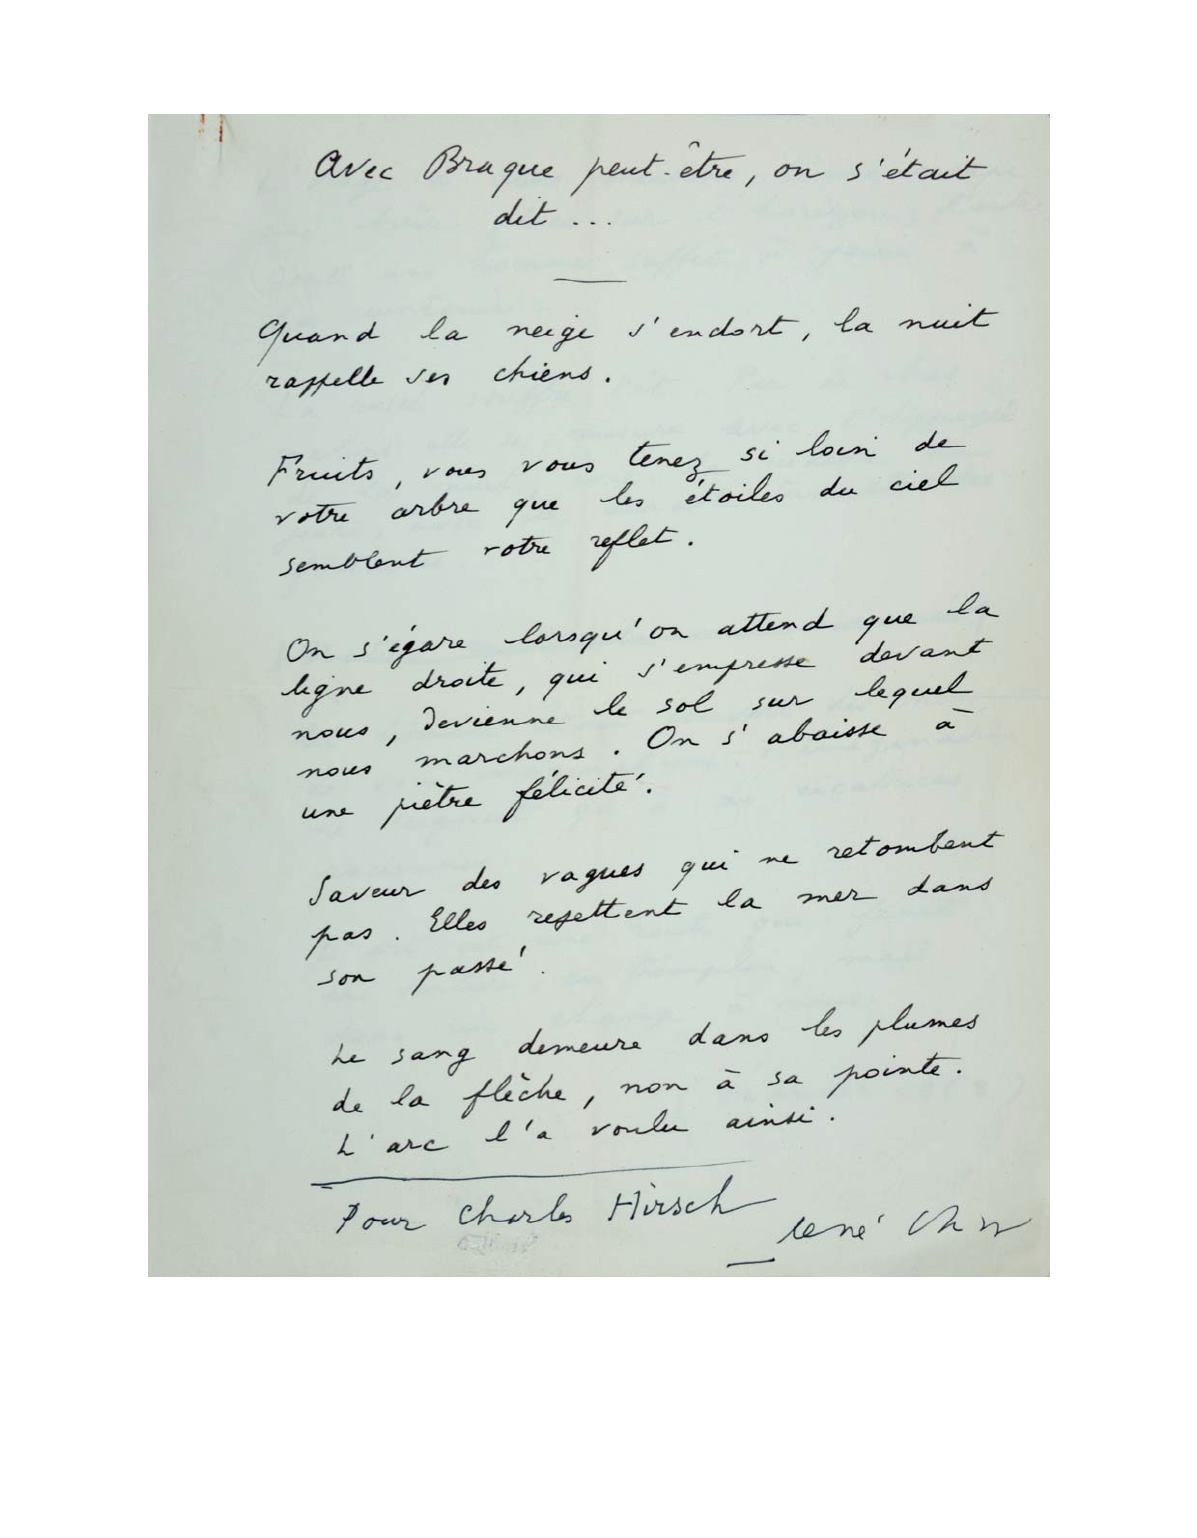 Avec Braque peut-être, on s'était
dit ...
Quand la neige s'endort, la nuit
rappelle ses chiens.
Fruits, vous vous tenez si loin de
votre arbre que les étoiles du ciel
semblent votre reflet.
On s'égare lorsqu'on attend que la
ligne droite, qui s'empresse devant
nous, devienne le sol sur lequel
nous marchons. On s'abaisse à
une piètre félicité.
Saveur des vagues qui ne retombent
pas. Elles rejettent la mer dans
son passé.
Le sang demeure dans les plumes
de la flèche, non à sa pointe.
L'arc l'a voulu ainsi.
Pour Charles Hirsch
René Char